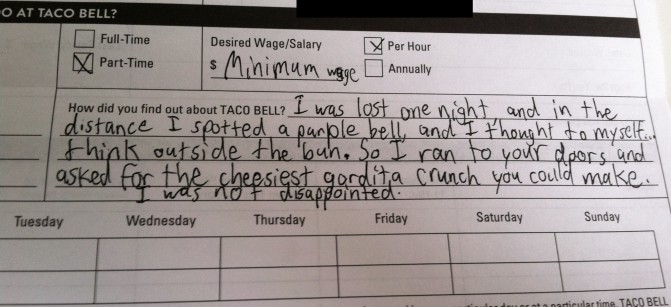 O AT TACO BELL?
Full-Time
Part-Time
Desired Wage/Salary
$ Minimum wage
Per Hour
Annually
How did you find out about TACO BELL? I was lost one night and in the
distance I spotted a purple bell, and I thought to myself...
think outside the bun. So I ran to your doors and
asked for the cheesiest gordita crunch you could make.
I was not disappointed.
Tuesday Wednesday Thursday Friday Saturday Sunday
particular time. TACO BELL